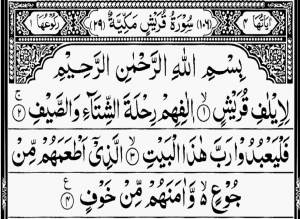 اٰیَاتُهَا ۴ (۱۰۶) سُوْرَةُ قُرَیْشٍ مَكِّیَّةٌ (۲۹) رُكُوْعُهَا ۱
بِسْمِ اللّٰهِ الرَّحْمٰنِ الرَّحِیْمِ
لِاِیْلٰفِ قُرَیْشٍ ۙ﴿۱﴾ اٖلٰفِهِمْ رِحْلَةَ الشِّتَآءِ وَالصَّیْفِ ۚ﴿۲﴾
فَلْیَعْبُدُوْا رَبَّ هٰذَا الْبَیْتِ ۙ﴿۳﴾ الَّذِیْۤ اَطْعَمَهُمْ مِّنْ
جُوْعٍ ۙ۬ وَّاٰمَنَهُمْ مِّنْ خَوْفٍ ﴿۴﴾ ع